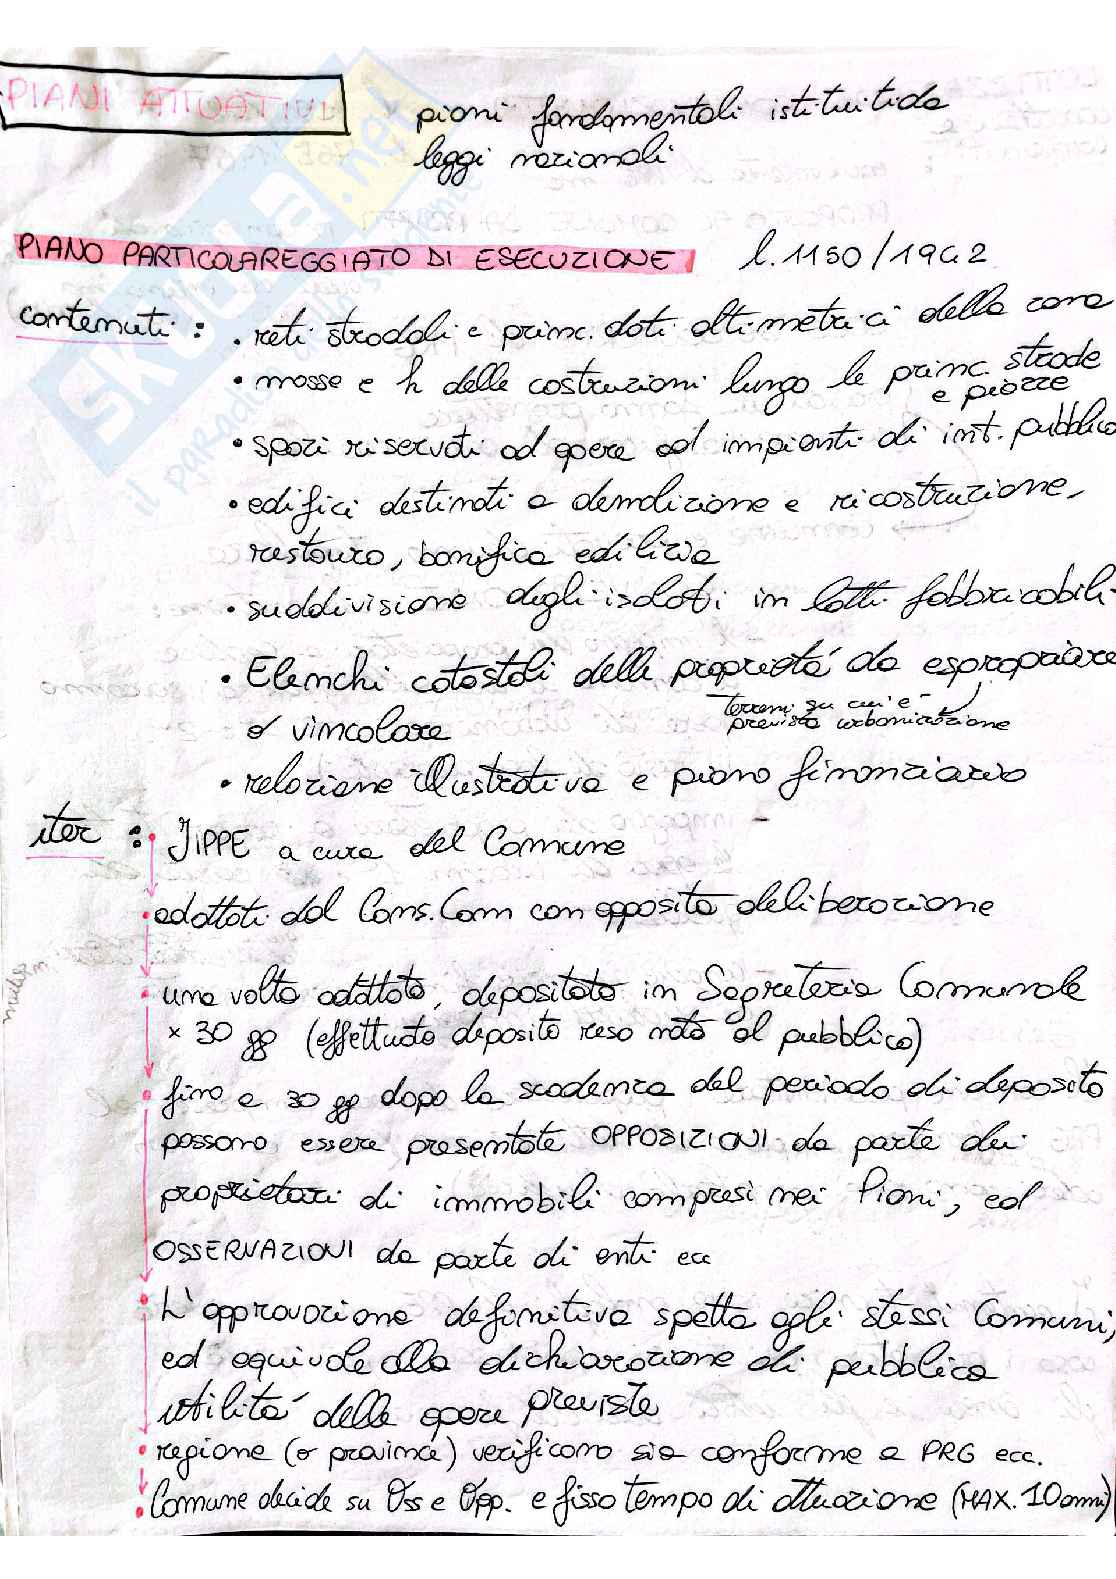 PIANI ATTUATIVI
piani fondamentali istituiti da
leggi nazionali
PIANO PARTICOLAREGGIATO DI ESECUZIONE l. 1150/1942
contenuti :
• reti stradali e princ. dati altimetrici della zona
• masse e h delle costruzioni lungo le princ. strade
e piazze
• spazi riservati ad opere ed impianti di int. pubblico
• edifici destinati a demolizione e ricostruzione,
restauro, bonifica edilizia
• suddivisione degli isolati in lotti fabbricabili
• Elenchi catastali delle proprietà da espropriare
o vincolare
terreni su cui è
prevista urbanizzazione
• relazione illustrativa e piano finanziario
iter :
• IL PPE a cura del Comune
• adottati dal Cons. Com con apposita deliberazione
• una volta adottato, depositato in Segreteria Comunale
x 30 gg (effettuato deposito reso noto al pubblico)
• fino a 30 gg dopo la scadenza del periodo di deposito
possono essere presentate OPPOSIZIONI da parte dei
proprietari di immobili compresi nei Piani, ed
OSSERVAZIONI da parte di enti ecc
• L'approvazione definitiva spetta agli stessi Comuni,
ed equivale alla dichiarazione di pubblica
utilità delle opere previste
• regione (o province) verificano sia conforme a PRG ecc.
• Comune decide su Oss e Opp. e fissa tempo di attuazione (MAX. 10 anni)
SKUOLA.net